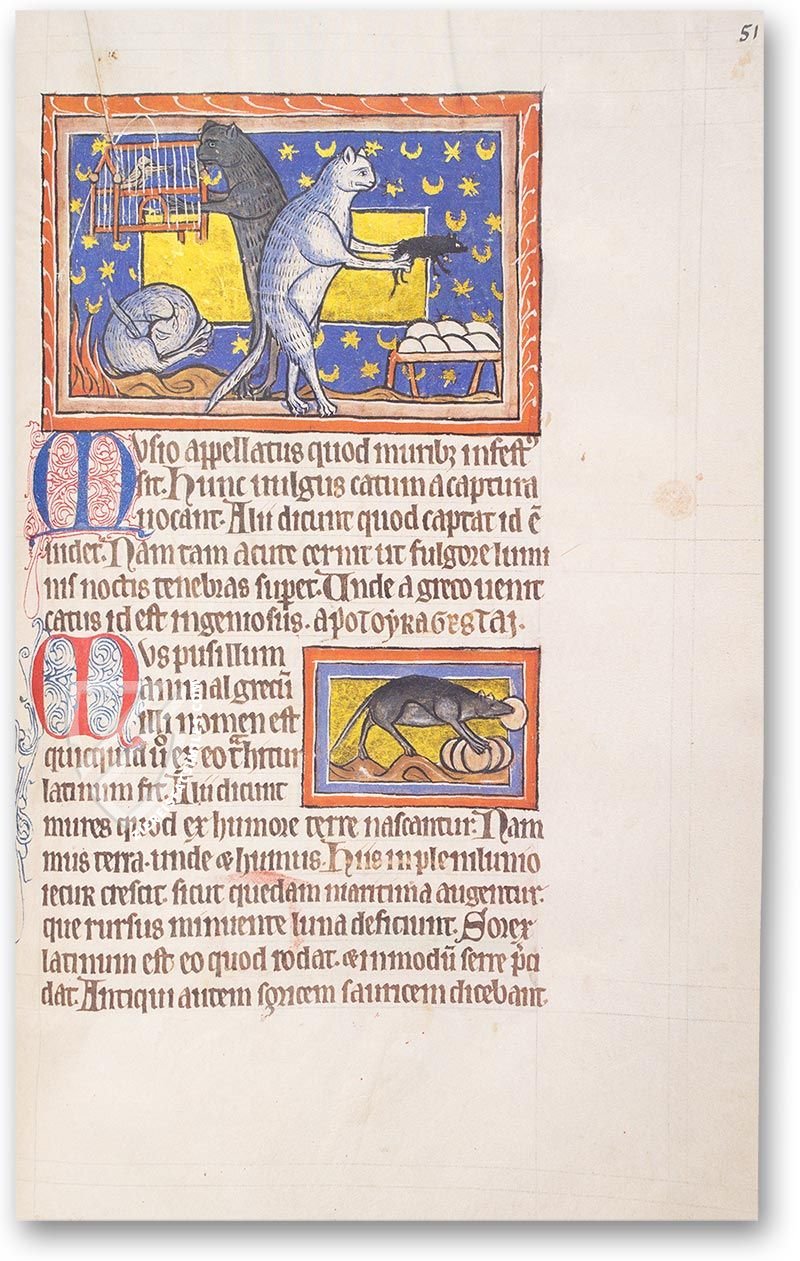 51
Musio appellatus quod muribȝ infestꝰ
sit. Hunc uulgus catum a captura
uocant. Alii dicunt quod captat id ē
uidet. Nam tam acute cernit ut fulgore lumi
nis noctis tenebras superet. Unde a greco uenit
catus id est ingeniosus.
Mus pusillum
animal grecū
illi nomen est
quicquid u͛o ex eo t̄hitur
latinum fit. Alii dicunt
mures quod ex humore terre nascantur. Nam
mus terra. unde ⁊ humus. Hiis in plenilunio
iecur crescit. sicut quedam maritima augentur.
que rursus minuente luna deficiunt. Sorex
latinum est eo quod rodat. ⁊ in modū serre p̄ci
dat. Antiqui autem soricem sauricem dicebant.